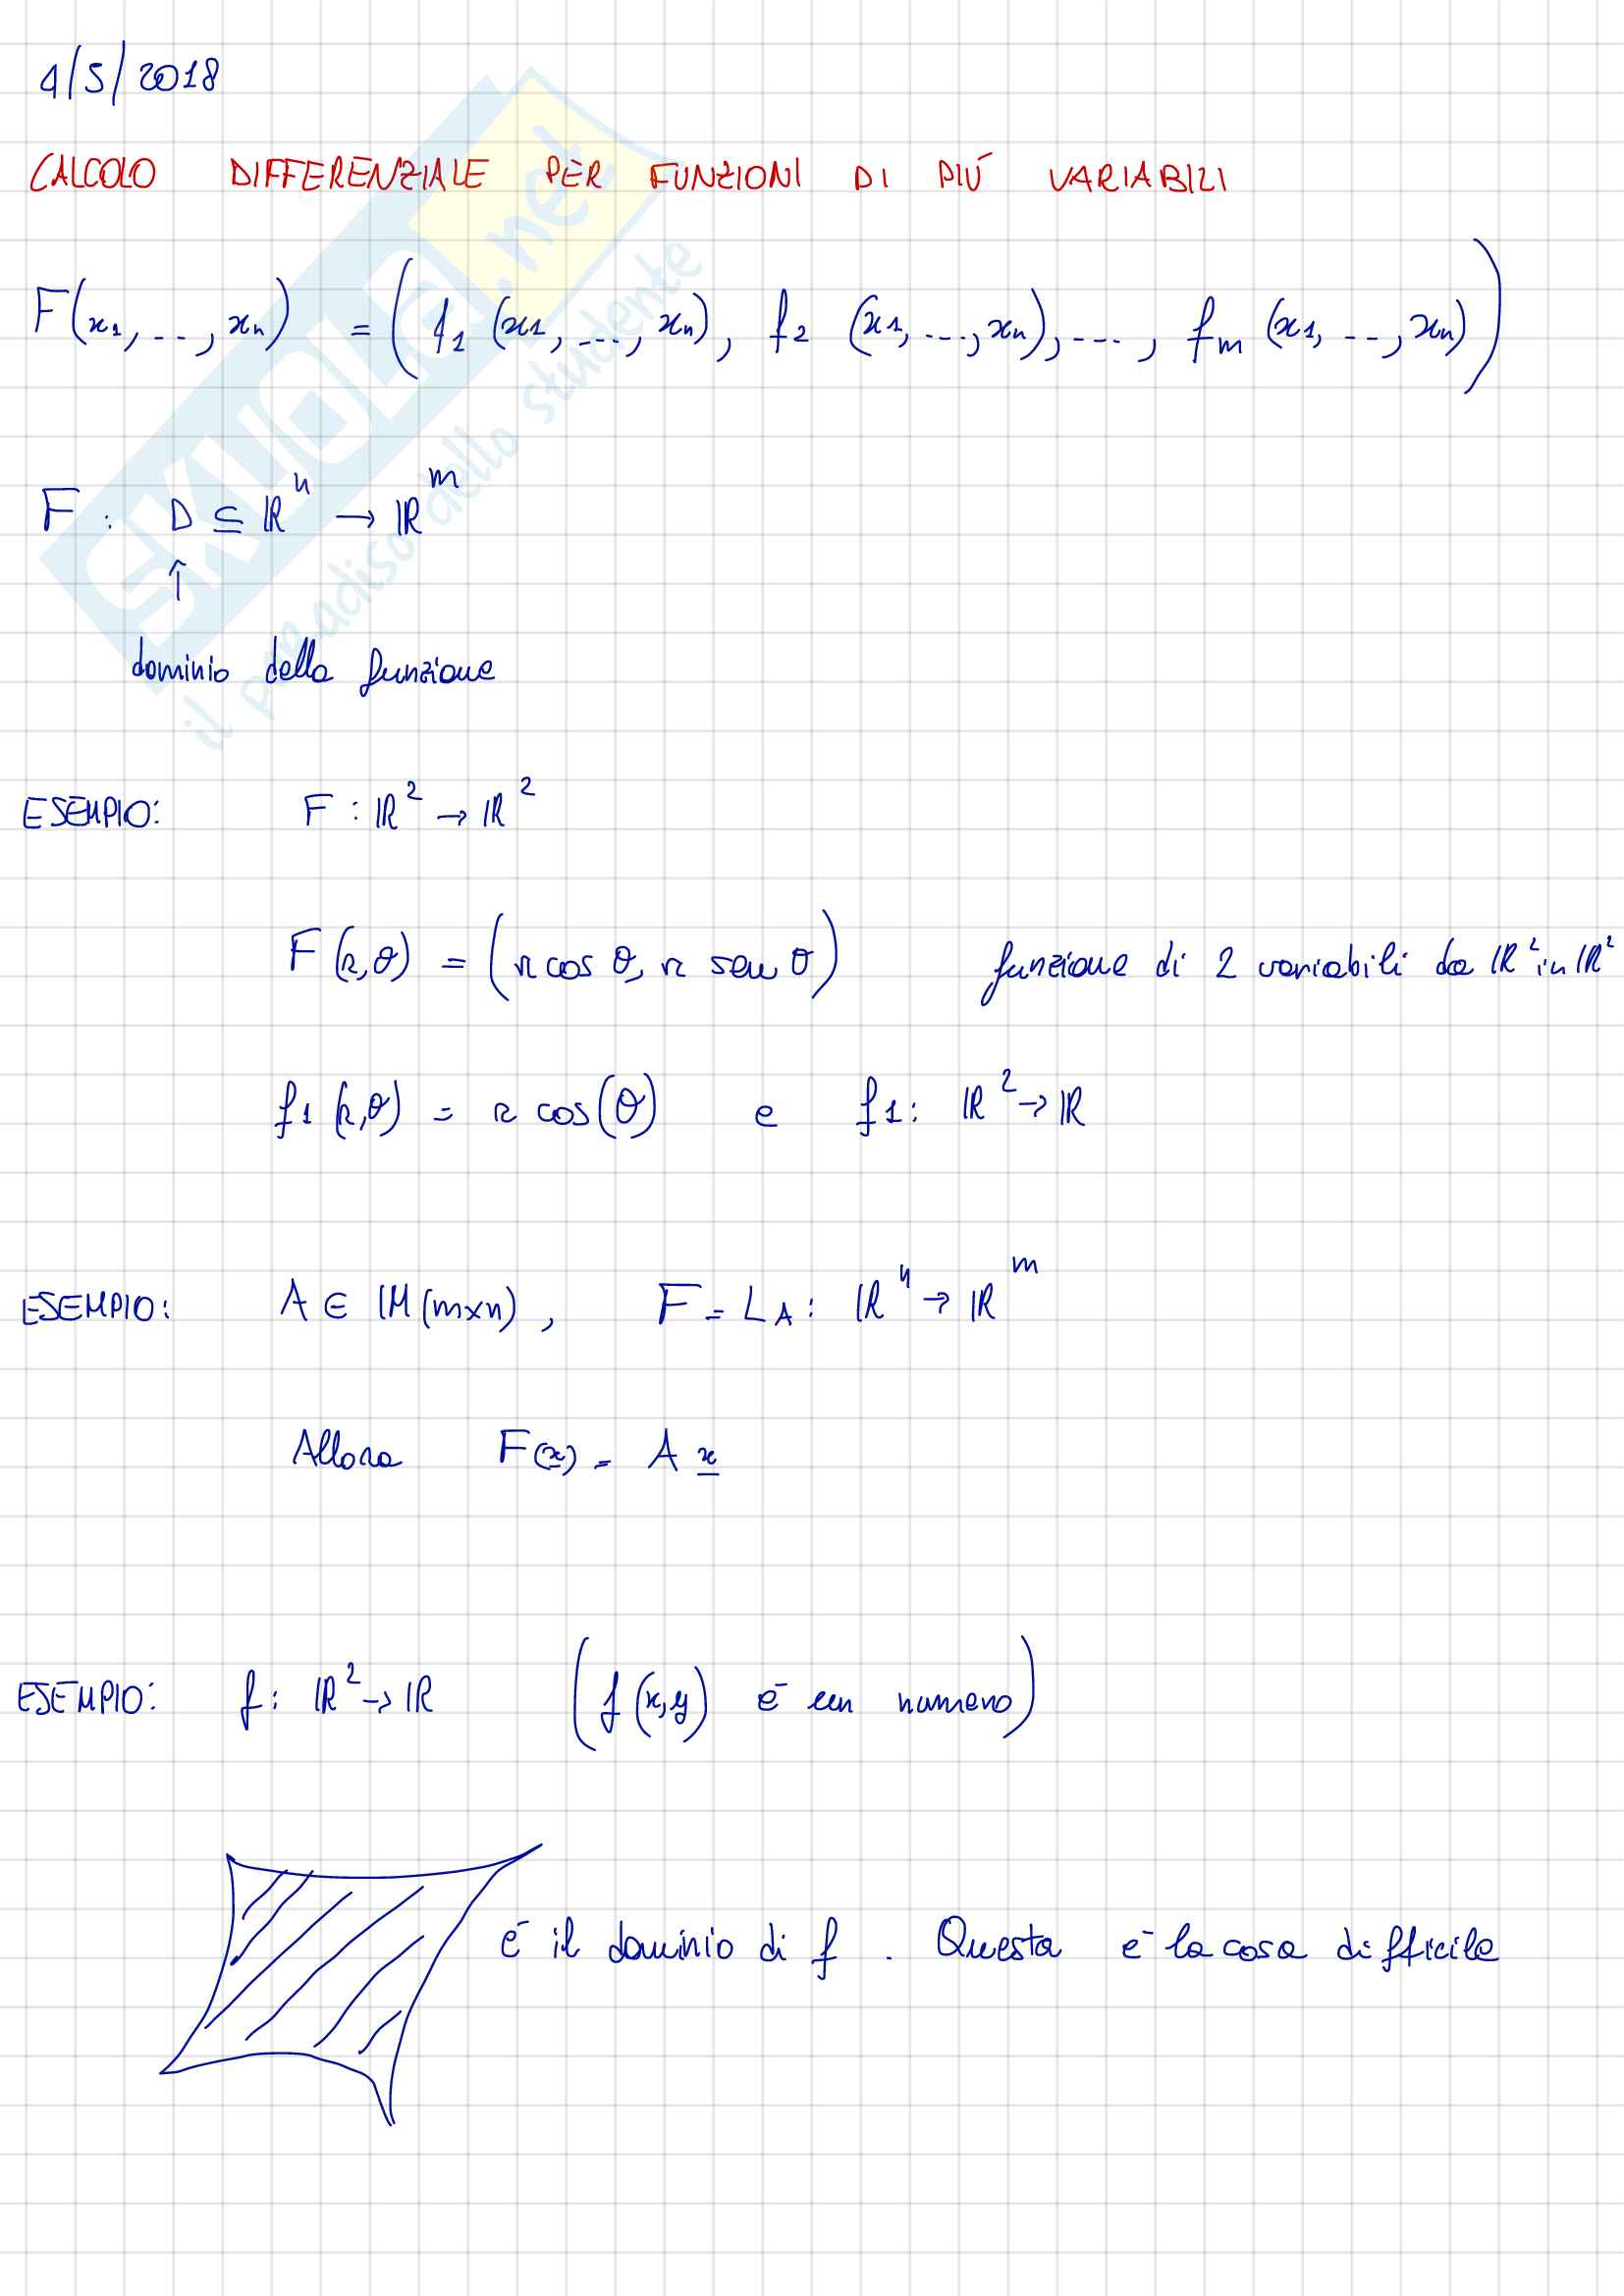 4/5/2018
CALCOLO DIFFERENZIALE PER FUNZIONI DI PIÚ VARIABILI
F(x₁, ..., xₙ) = (f₁ (x₁, ..., xₙ), f₂ (x₁, ..., xₙ), ..., fₘ (x₁, .., xₙ))
F : D ⊆ ℝⁿ → ℝᵐ
↑
dominio della funzione
ESEMPIO: F : ℝ² → ℝ²
F(r,θ) = (r cos θ, r sen θ) funzione di 2 variabili da ℝ² in ℝ²
f₁(r,θ) = r cos(θ) e f₁: ℝ² → ℝ
ESEMPIO: A ∈ M(m×n), F = L_A : ℝⁿ → ℝᵐ
Allora F(x) = A x
ESEMPIO: f: ℝ² → ℝ (f(x,y) é un numero)
é il dominio di f. Questa é la cosa difficile
SKUOLA.net
il paradiso dello studente